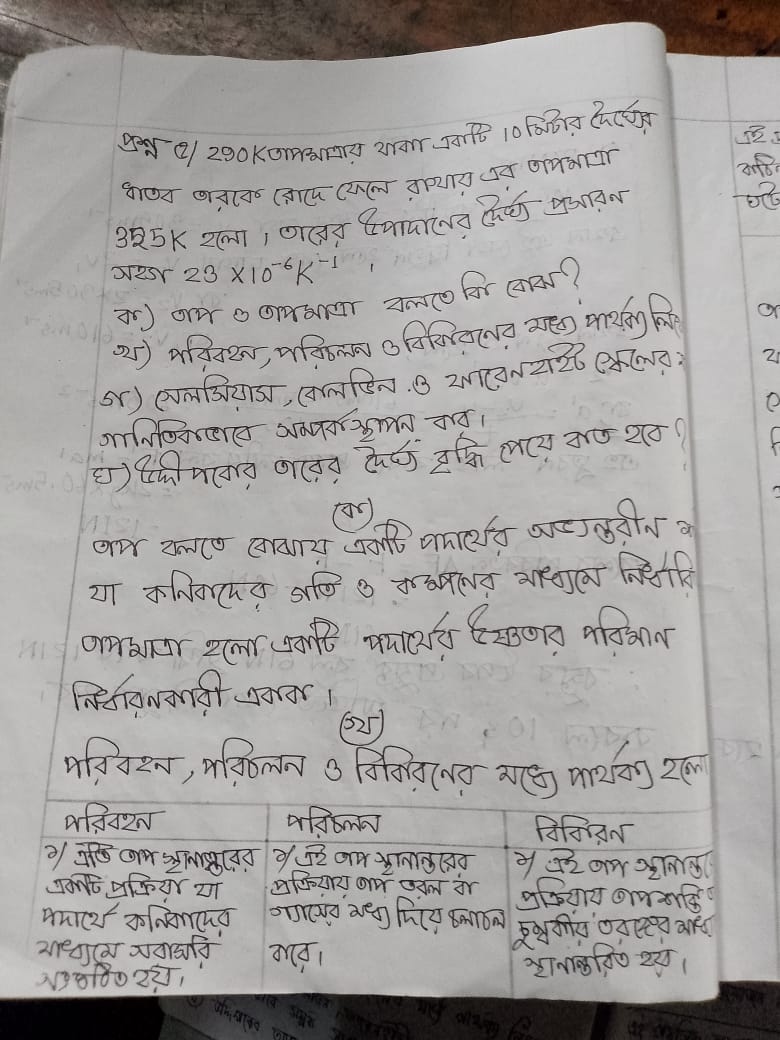 প্রশ্ন ৫/ 290K তাপমাত্রায় থাকা একটি 10 মিটার দৈর্ঘ্যের
ধাতব তারকে রোদে ফেলে রাখায় এর তাপমাত্রা
325K হলো। তারের উপাদানের দৈর্ঘ্য প্রসারন
সহগ 23 X10⁻⁶K⁻¹ ।
ক) তাপ ও তাপমাত্রা বলতে কি বোঝ?
খ) পরিবহন, পরিচলন ও বিকিরনের মধ্যে পার্থক্য লি
গ) সেলসিয়াস, কেলভিন ও ফারেনহাইট স্কেলের
গানিতিকভাবে সম্পর্ক স্থাপন কর।
ঘ) উদ্দীপকের তারের দৈর্ঘ্য বৃদ্ধি পেয়ে কত হবে?
(ক)
তাপ বলতে বোঝায় একটি পদার্থের অভ্যন্তরীন
যা কনিকাদের গতি ও কম্পনের মাধ্যমে নির্ধারি
তাপমাত্রা হলো একটি পদার্থের উষ্ণতার পরিমান
নির্ধারনকারী একক।
(খ)
পরিবহন, পরিচলন ও বিকিরনের মধ্যে পার্থক্য হলো
পরিবহন পরিচলন বিকিরন
১/ এটি তাপ স্থানান্তরের
একটি প্রক্রিয়া যা
পদার্থে কনিকাদের
মাধ্যমে সরাসরি
হয়।
১/ এই তাপ স্থানান্তরের
প্রক্রিয়ায় তাপ তরল বা
গ্যাসের মধ্য দিয়ে চলাচল
করে।
১/ এই তাপ স্থানান্ত
প্রক্রিয়ায় তাপশক্তি
চুম্বকীয় তরঙ্গের মাধ্য
স্থানান্তরিত হয়।